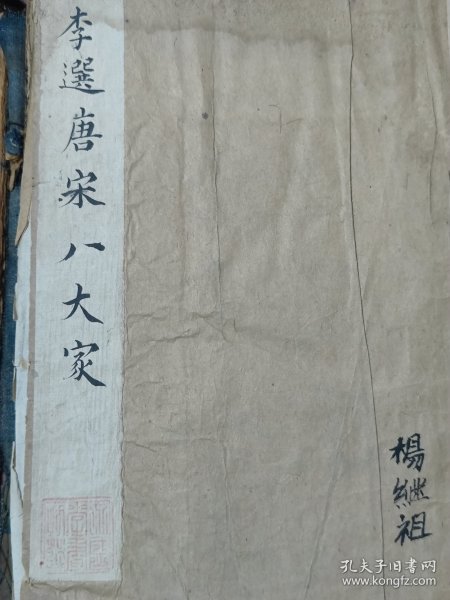 李選唐宋八大家
楊繼祖
孔夫子旧书网
www.kongfz.com